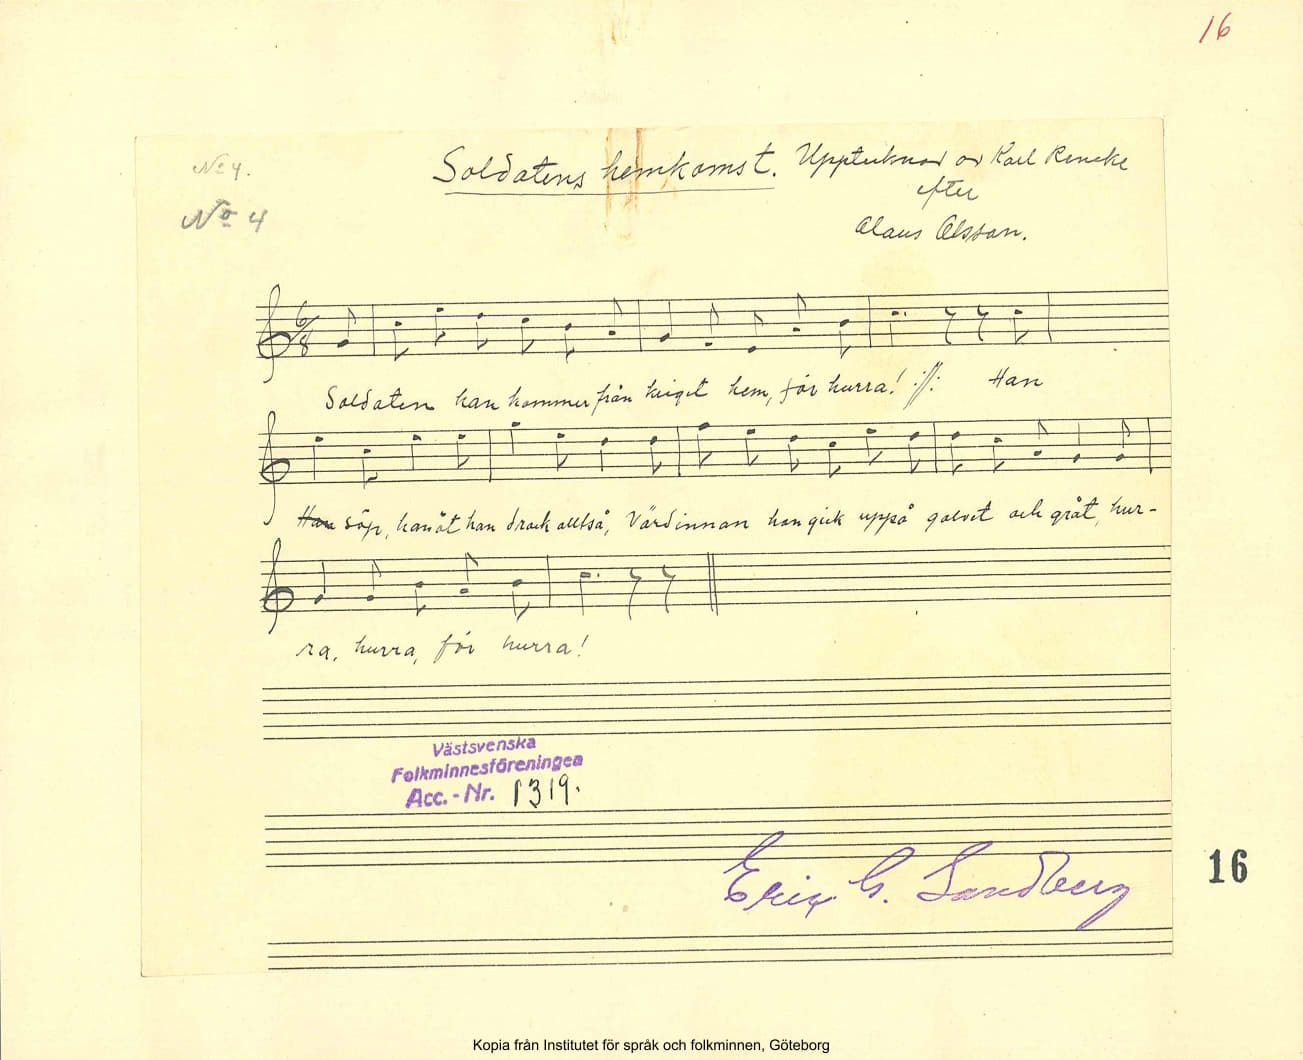 16
No 4.
No 4
Soldatens hemkomst. Upptecknad av Karl Reneke
efter
Claus Olsson.
6/8
Soldaten han kommer från kriget hem, för hurra! :||: Han
Han söp, han åt han drack alltså, Värdinnan hon gick uppå golvet och gråt, hur-
ra, hurra, för hurra!
Västsvenska
Folkminnesföreningen
Acc.-Nr. 1319.
Eric G. Sandberg
16
Kopia från Institutet för språk och folkminnen, Göteborg